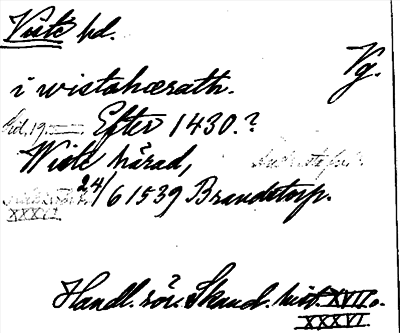 Viste hd.
Vg.
i wistahærath.
Efter 1430.?
Wiste härad,
24/6 1539 Brandstorp.
XXXVI
Handl. rör. Skand. hist. XVII
XXXVI.